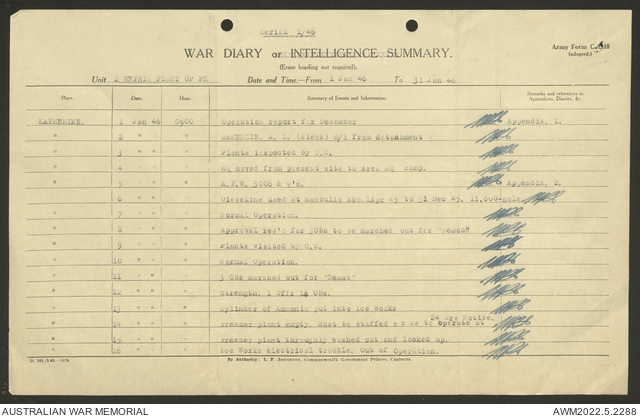 Serial 1/46
WAR DIARY or INTELLIGENCE SUMMARY.
(Erase heading not required).
Army Form C. 2118
(adapted.)
Unit 2 REFRIG PLANT OP PL Date and Time.—From 1 Jan 46 To 31 Jan 46
Place. Date. Hour. Summary of Events and Information. Remarks and references to Appendices, Diaries, &c.
KATHERINE. 1 Jan 46 0900 Operation report for December Appendix 1.
" 2 " " A. L. (clerk) m/i from detachment -
" 3 " " Plants inspected by O.C.
" 4 " " HQ moved from present site to Area HQ camp.
" 5 " " A.F.W. 3008 & 9's. Appendix 2.
" 6 " " Dieseline used at Manbullo Abo. 1Apr 45 to 31 Dec 45. 11,600 Gals.
" 7 " " Normal Operation.
" 8 " " Approval rec'd for 3ORs to be marched out for "Demob"
" 9 " " Plants visited by O.C.
" 10 " " Normal Operation.
" 11 " " 3 ORs marched out for "Demob"
" 12 " " Strength. 1 Offr 14 ORs.
" 13 " " Cylinder of Ammonia put into Ice Works
" 14 " " Freezer plant empty. Must be staffed so as to operate at 24 Hrs Notice.
" 15 " " Freezer plant throughly washed out and locked up.
" 16 " " Ice Works electrical trouble. Out of Operation.
By Authority: L. F. Johnston, Commonwealth Government Printer, Canberra.
AUSTRALIAN WAR MEMORIAL AWM2022.5.2288